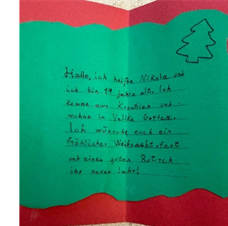 Hallo, ich heiße Nikola und
ich bin 14 Jahre alt. Ich
komme aus Kroatien und
wohne in Velika Gorica.
Ich wünsche euch ein
fröhliches Weihnachtsfest
und einen guten Rutsch
ins neues Jahr!